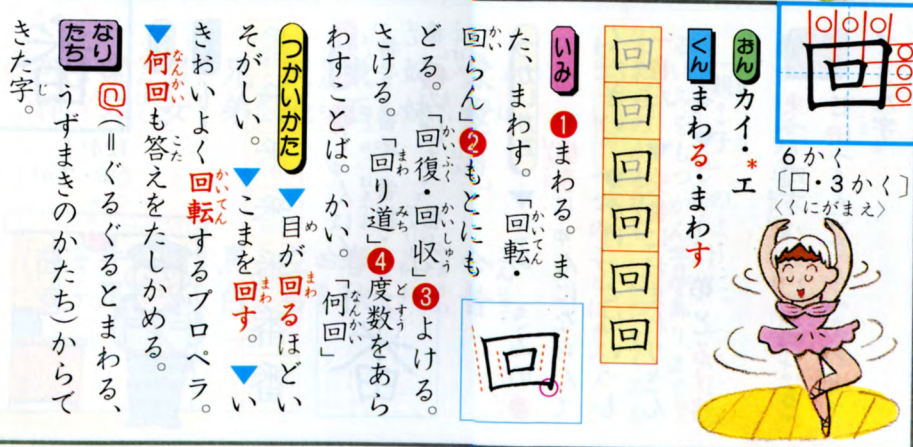 回
6かく
〔囗・3かく〕
〈くにがまえ〉
おん カイ・*エ
くん まわる・まわす
回回回回回回
いみ ❶まわる。ま
た、まわす。「回転・
回らん」❷もとにも
どる。「回復・回収」❸よける。
さける。「回り道」❹度数をあら
わすことば。かい。「何回」
回
つかいかた ▼目が回るほどい
そがしい。▼こまを回す。▼い
きおいよく回転するプロペラ。
▼何回も答えをたしかめる。
なりたち （＝ぐるぐるとまわる、
うずまきのかたち）からて
きた字。